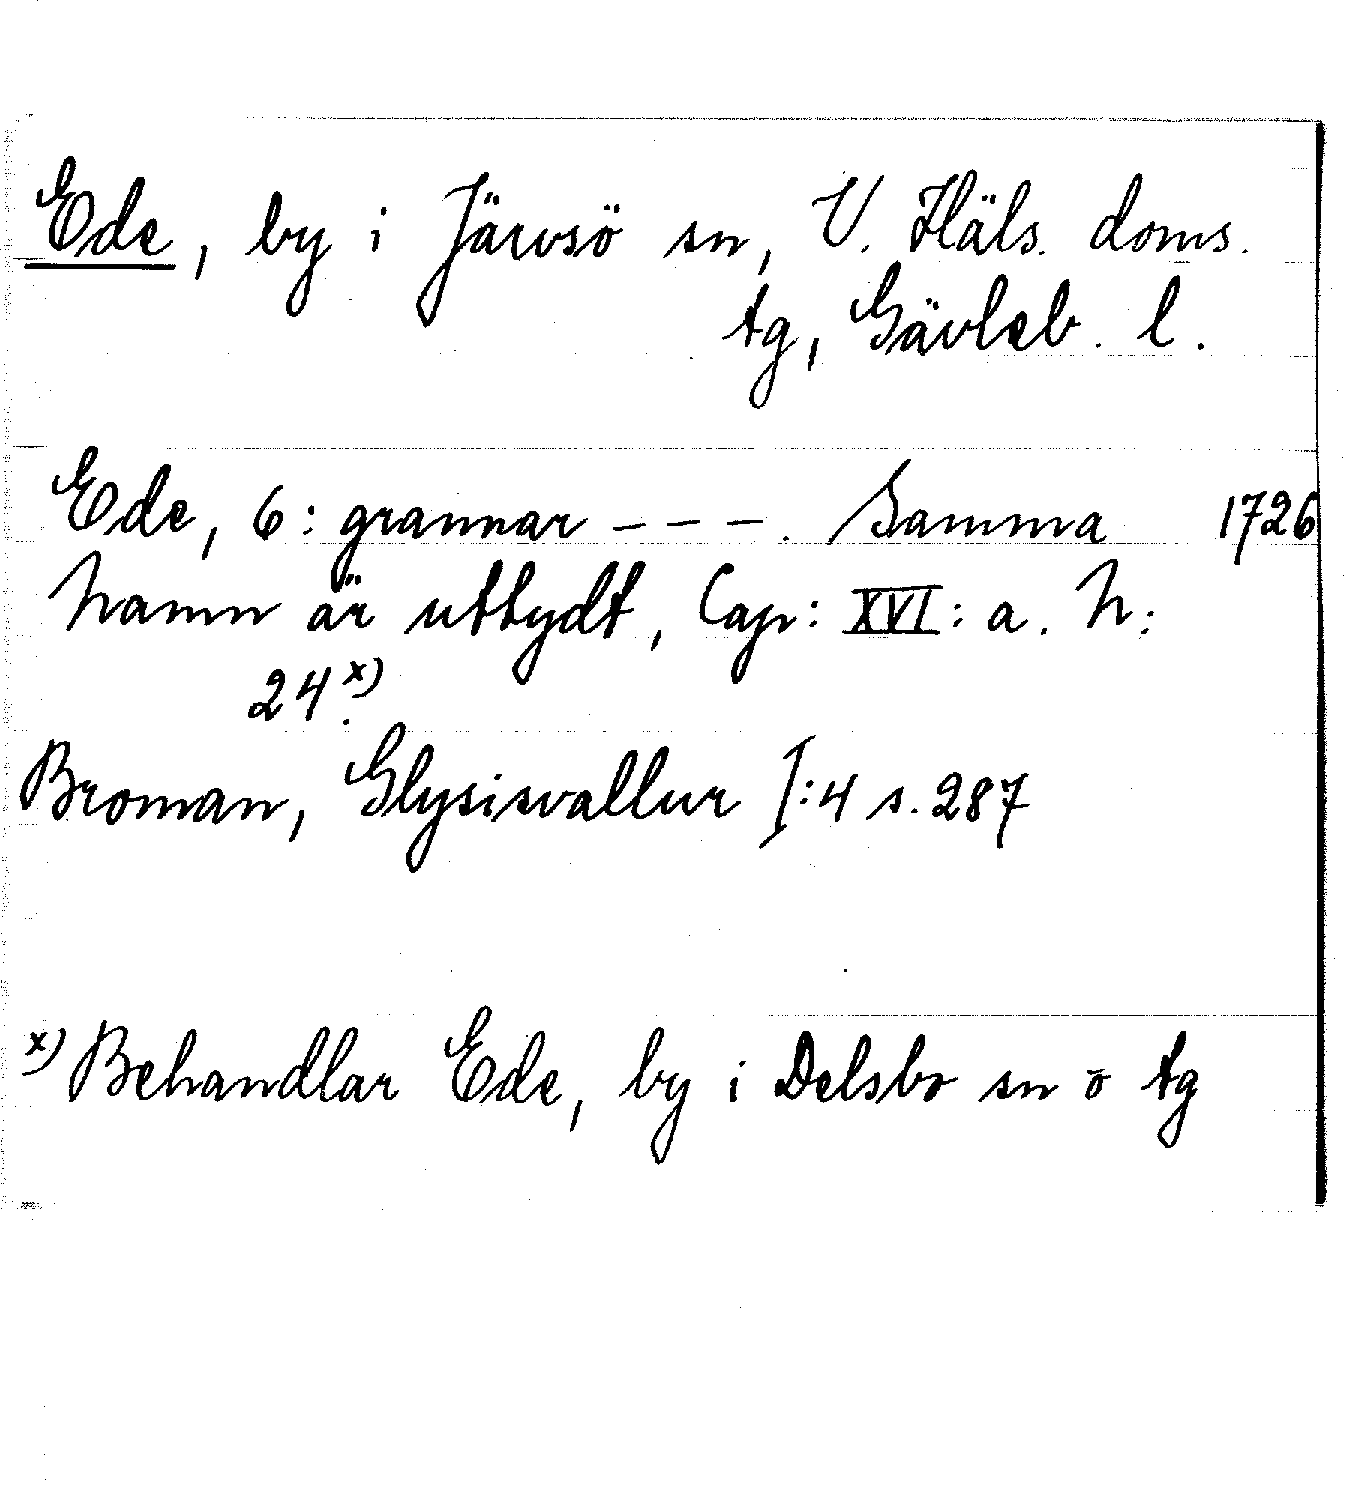 Ede, by i Järvsö sn, V. Häls. doms.
tg, Gävleb. l.
Ede, 6: grannar - - - . Samma 1726
Namn är uttydt, Cap: XVI: a. N:
24.x)
Broman, Glysisvallur I:4 s. 287
x) Behandlar Ede, by i Delsbo sn o tg